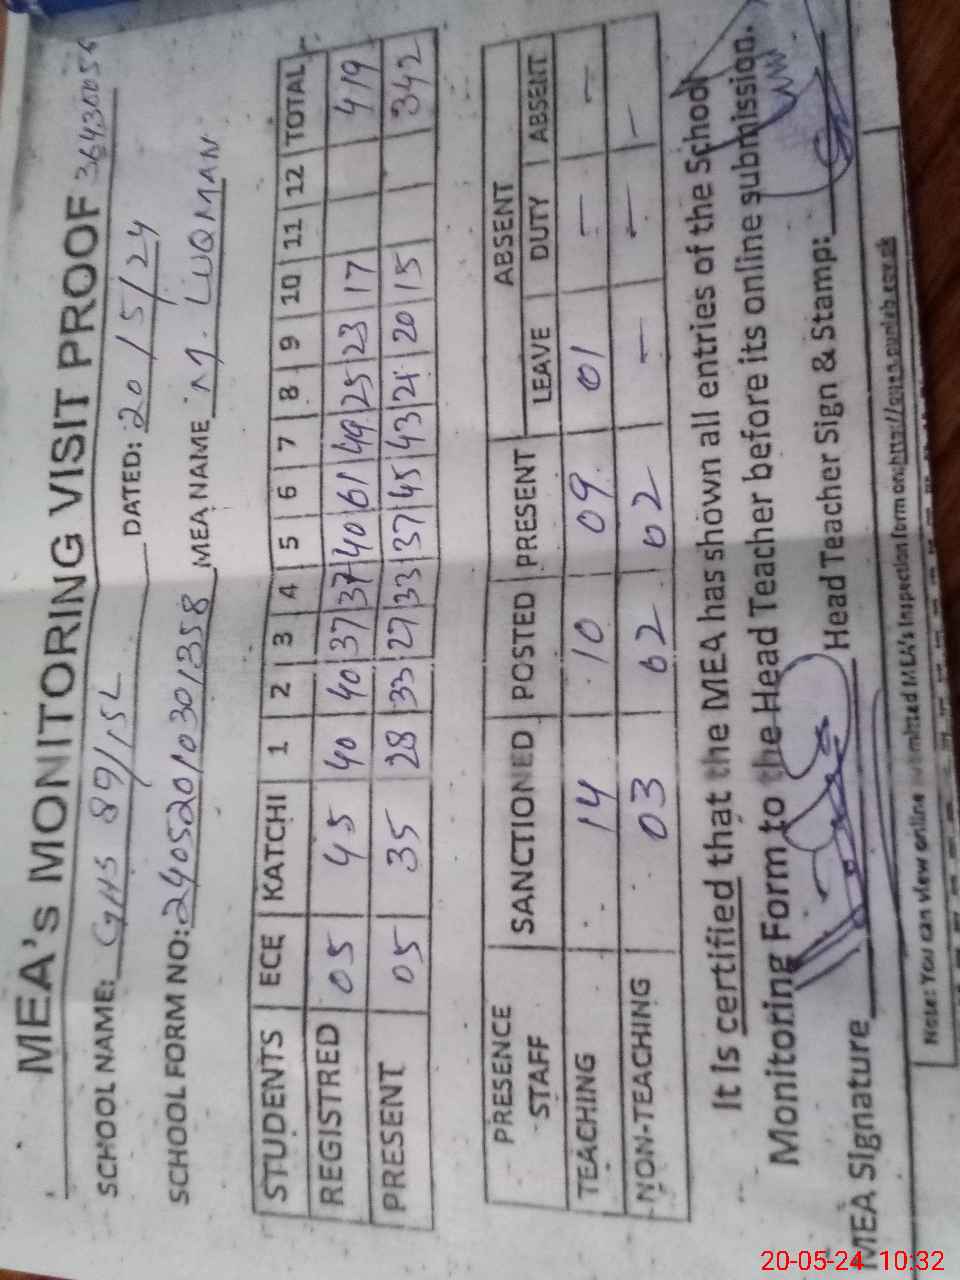 MEA's MONITORING VISIT PROOF 36430055
SCHOOL NAME: GHS 89/15L DATED: 20/5/24
SCHOOL FORM NO: 24052010301358 MEA NAME M. LUQMAN
STUDENTS ECE KATCHI 1 2 3 4 5 6 7 8 9 10 11 12 TOTAL
REGISTRED 05 45 40 40 37 37 40 61 49 25 23 17 419
PRESENT 05 35 28 33 27 33 37 45 43 21 20 15 342
PRESENCE STAFF SANCTIONED POSTED PRESENT ABSENT
LEAVE DUTY ABSENT
TEACHING 14 10 09 01 — —
NON-TEACHING 03 02 02 — — —
It Is certified that the MEA has shown all entries of the School
Monitoring Form to the Head Teacher before its online submission.
MEA Signature Head Teacher Sign & Stamp:
Note: You can view online submitted MEA's Inspection form on:
20-05-24 10:32